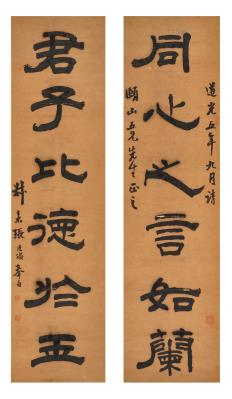 道光五年九月請
同心之言如蘭
頤山五兄先生正之
君子比德於玉
張廷濟